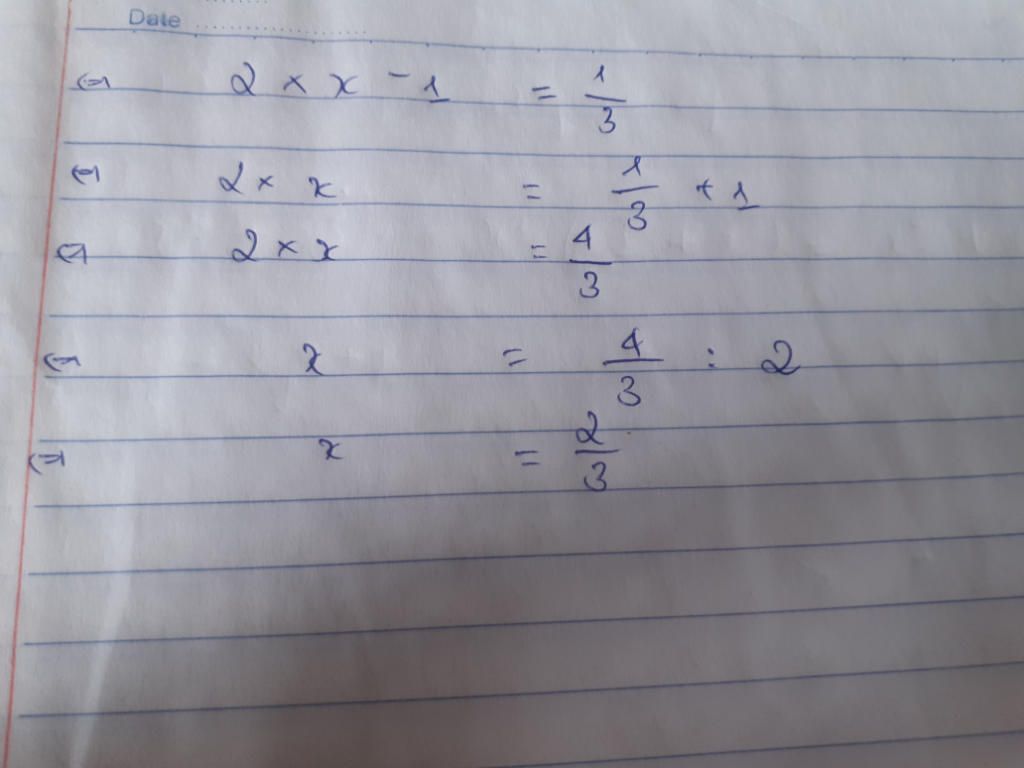 Date ....................
⇔ 2 × x - 1 = 1/3
⇔ 2 × x = 1/3 + 1
⇔ 2 × x = 4/3
⇔ x = 4/3 : 2
⇔ x = 2/3